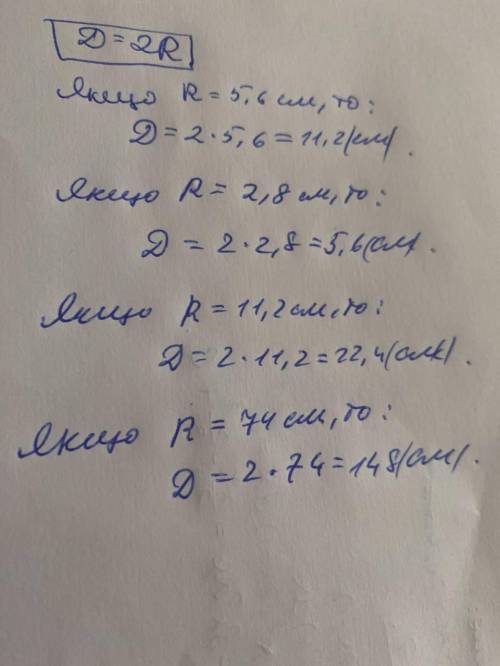 D = 2R
Якщо R = 5,6 см, то:
D = 2 · 5,6 = 11,2 (см).
Якщо R = 2,8 см, то:
D = 2 · 2,8 = 5,6 (см).
Якщо R = 11,2 см, то:
D = 2 · 11,2 = 22,4 (см).
Якщо R = 74 см, то:
D = 2 · 74 = 148 (см).